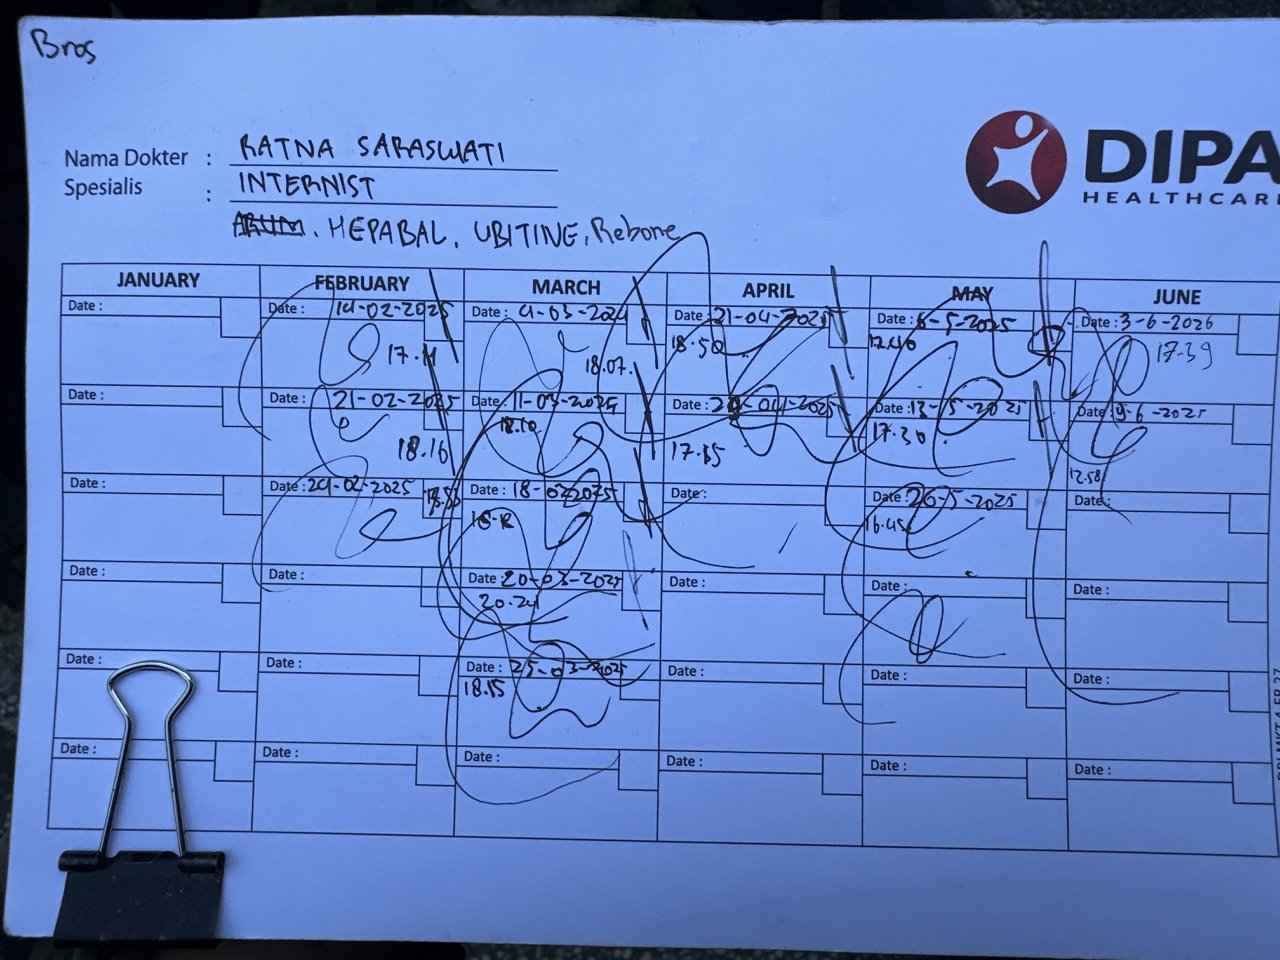 Bros
Nama Dokter : RATNA SARASWATI
Spesialis : INTERNIST
HEPABAL, UBITINE, Rebone
DIPA
HEALTHCARE
JANUARY FEBRUARY MARCH APRIL MAY JUNE
Date : Date : 14-02-2025 Date : 4-03-2025 Date : 21-04-2025 Date : 6-5-2025 Date : 3-6-2026
17.11 18.07. 18.50 17.40 17.39
Date : Date : 21-02-2025 Date : 11-03-2025 Date : -04-2025 Date : 13-5-2025 Date : 9-6-2025
18.16 18.10 17.35 17.30 12.58
Date : Date : 24-02-2025 Date : 18-03-2025 Date : Date : 26-5-2025 Date :
16.45
Date : Date : Date : 20-03-2025 Date : Date : Date :
20.24
Date : Date : Date : 25-03-2025 Date : Date : Date :
18.15
Date : Date : Date : Date : Date : Date :